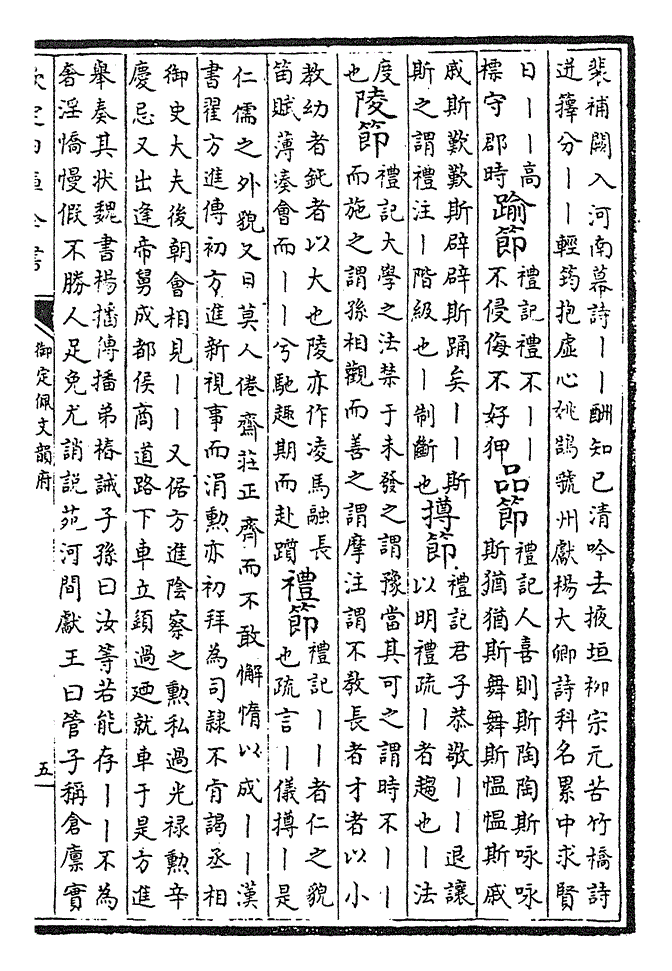 裴補闕入河南幕詩丨丨酬知已清吟去掖垣柳宗元苦竹橋詩
迸籜分丨丨輕筠抱虛心姚鵠虢州獻楊大卿詩科名累中求賢
日丨丨高
標守郡時
踰節
禮記禮不丨丨
不侵侮不好狎
品節
禮記人喜則斯陶陶斯咏咏
斯猶猶斯舞舞斯慍慍斯戚
戚斯歎歎斯辟辟斯踊矣丨丨斯
斯之謂禮注丨階級也丨制斷也
撙節
禮記君子恭敬丨丨退讓
以明禮疏丨者趨也丨法
度
也
陵節
禮記大學之法禁于未發之謂豫當其可之謂時不丨丨
而施之謂孫相觀而善之謂摩注謂不教長者才者以小
教幼者鈍者以大也陵亦作凌馬融長
笛賦薄湊會而丨丨兮馳趣期而赴躓
禮節
禮記丨丨者仁之貌
也疏言丨儀撙丨是
仁儒之外貌又曰莫人倦齋莊正齊而不敢懈惰以成丨丨漢
書翟方進傳初方進新視事而涓勲亦初拜為司隸不肯謁丞相
御史大夫後朝會相見丨丨又倨方進陰察之勲私過光禄勲辛
慶忌又出逢帝舅成都侯商道路下車立䪴過廼就車于是方進
舉奏其狀魏書楊播傳播弟椿誡子孫曰汝等若能存丨丨不為
奢淫憍慢假不勝人足免尤誚說苑河間獻王曰管子稱倉廪實
欽定四庫全書
御定佩文韻府
五